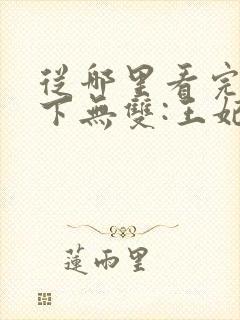 從哪里看完
下無雙:王妃
蓮雨里